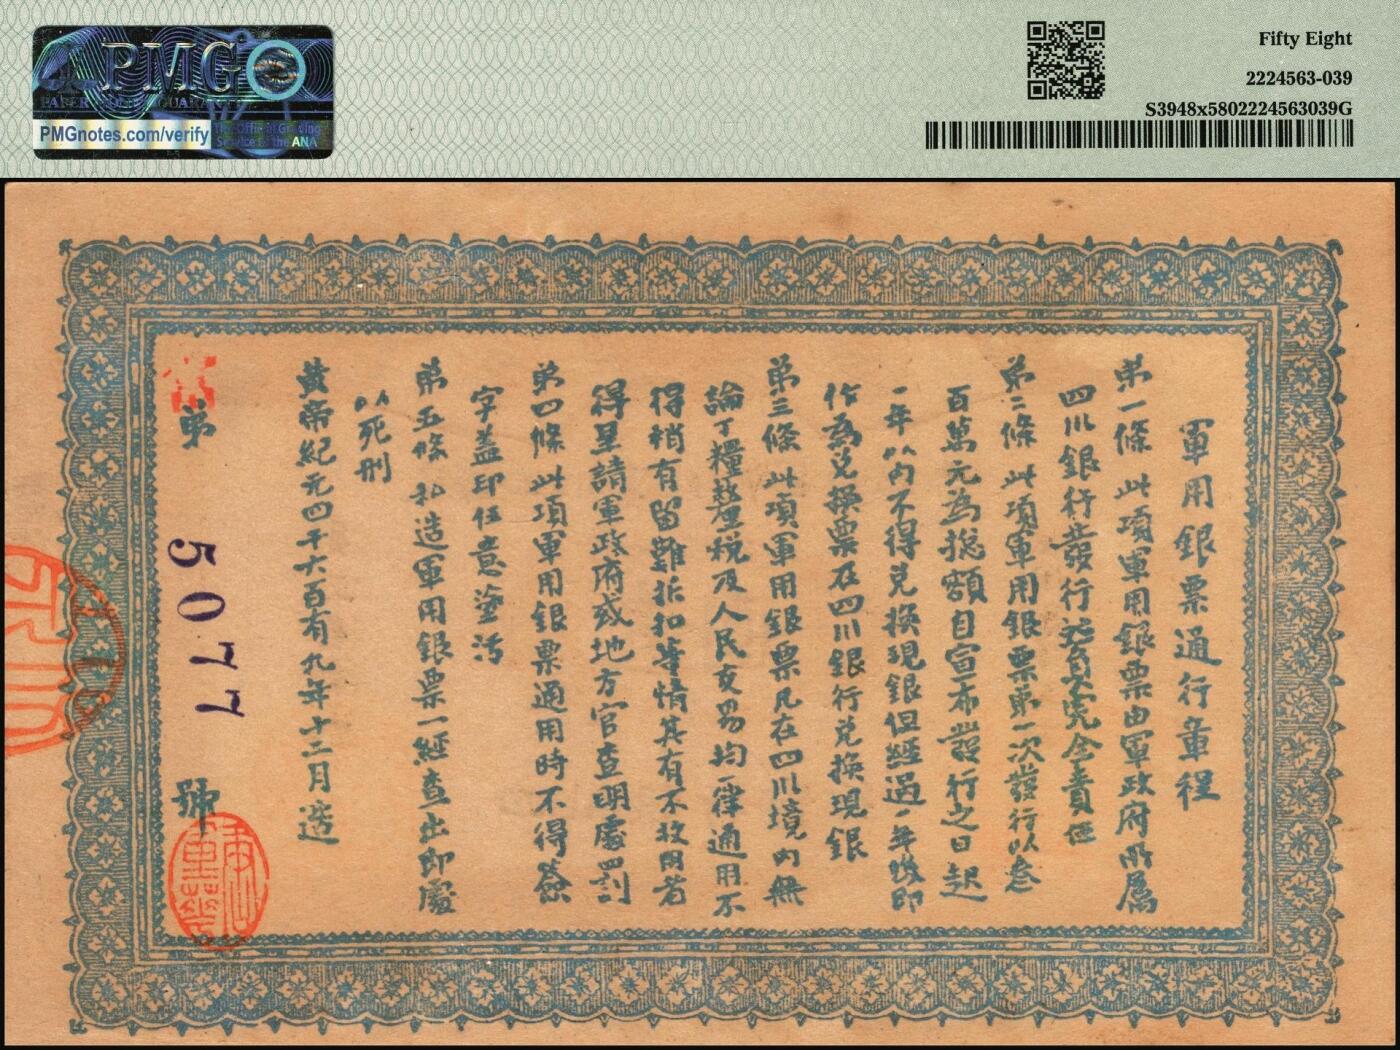 PMG
PAPER MONEY GUARANTY
PMGnotes.com/verify
The Official Grading
Service of the ANA
Fifty Eight
2224563-039
S3948x5802224563039G
軍用銀票通行章程
第一條 此項軍用銀票由軍政府所屬
四川銀行發行並負完全責任
第二條 此項軍用銀票第一次發行以叁
百萬元為總額自宣布發行之日起
一年以內不得兑換現銀但經過一年後即
作為兑換票在四川銀行兑換現銀
第三條 此項軍用銀票凡在四川境內無
論丁糧釐稅及人民交易均一律通用不
得稍有留難折扣等情其有不收用者
得呈請軍政府或地方官查明處罰
第四條 此項軍用銀票通用時不得簽
字蓋印任意塗污
第五條 私造軍用銀票一經查出即處
以死刑
黃帝紀元四千六百有九年十二月造
第 5077 號